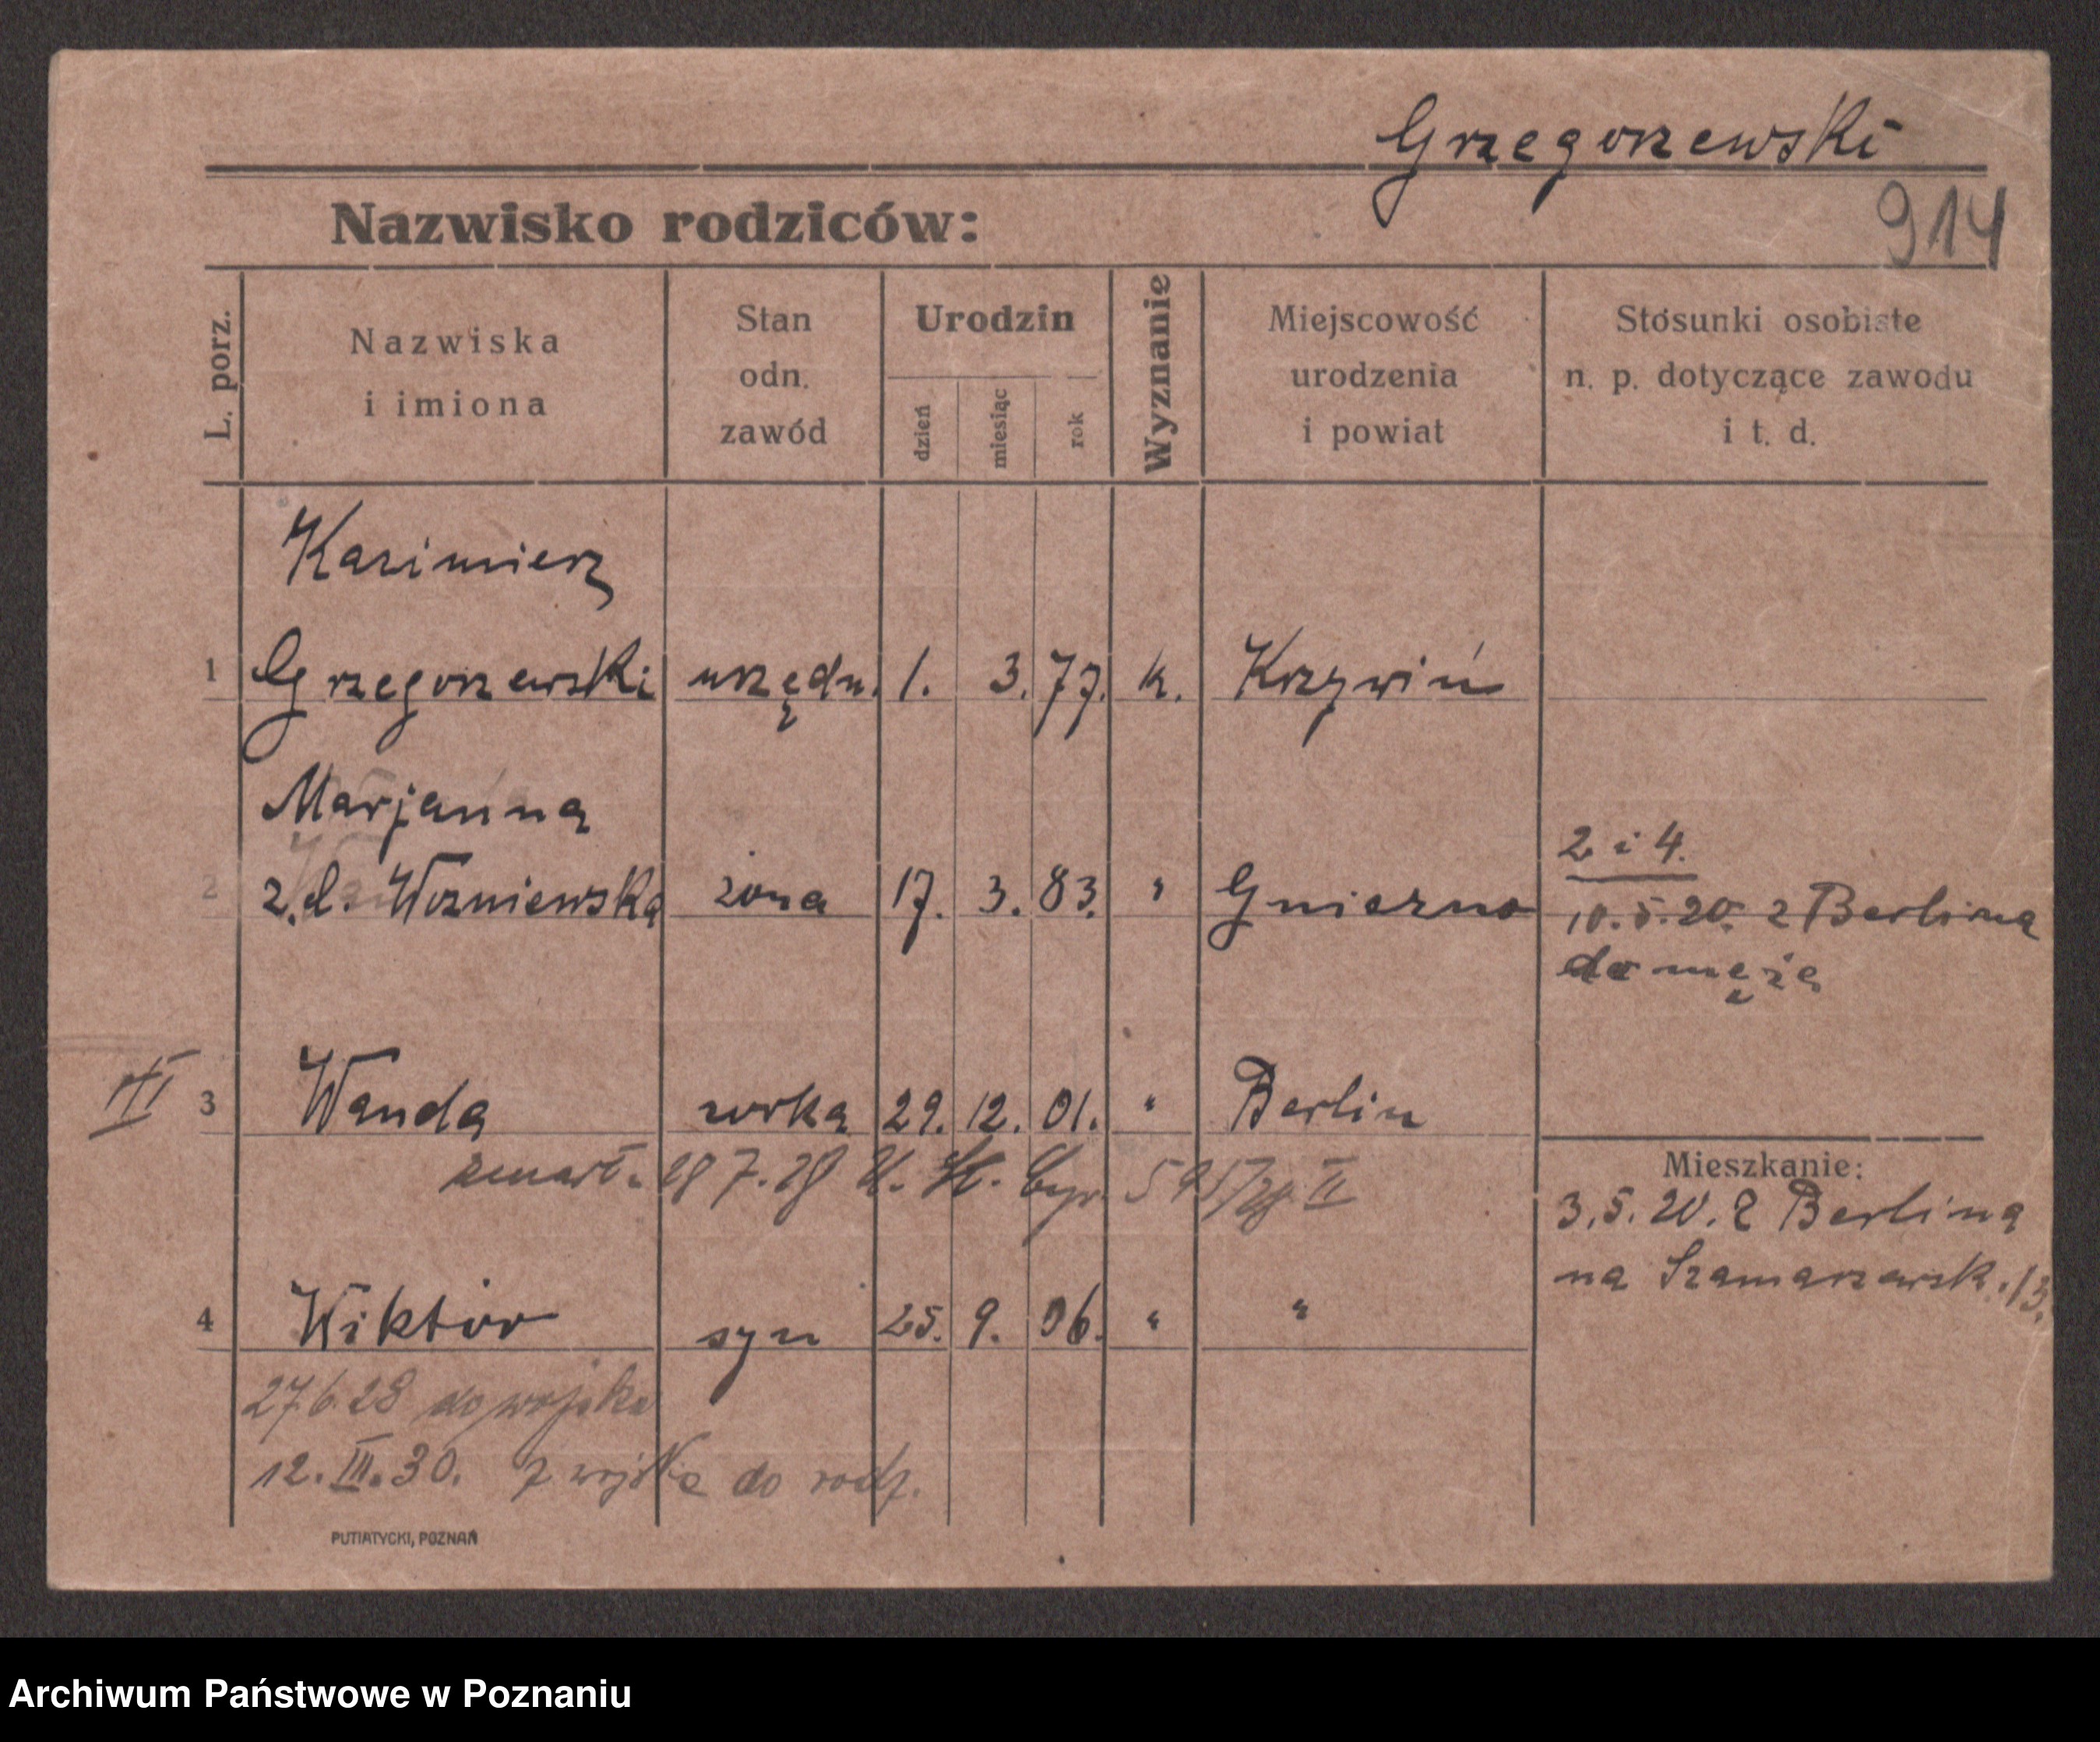 Grzegorzewski
914
Nazwisko rodziców:
L. porz.
Nazwiska
i imiona
Stan
odn.
zawód
Urodzin
dzień
miesiąc
rok
Wyznanie
Miejscowość
urodzenia
i powiat
Stosunki osobiste
n. p. dotyczące zawodu
i t. d.
Kazimierz
1 Grzegorzewski urzędn. 1. 3. 77. k. Krzywiń
Marjanna
2 z. d. Wozniewska żona 17. 3. 83. " Gniezno
2 i 4.
10.5.20. z Berlina
do męża
III
3 Wanda córka 29. 12. 01. " Berlin
zmarł. 28 7. 28 U. St. Cyw. 595/28. II
Mieszkanie:
3.5.20. z Berlina
na Szamarzewsk. 13.
4 Wiktor syn 25. 9. 06. " "
27.6.28 do wojska
12. III. 30. z wojska do rodz.
PUTIATYCKI, POZNAŃ
Archiwum Państwowe w Poznaniu